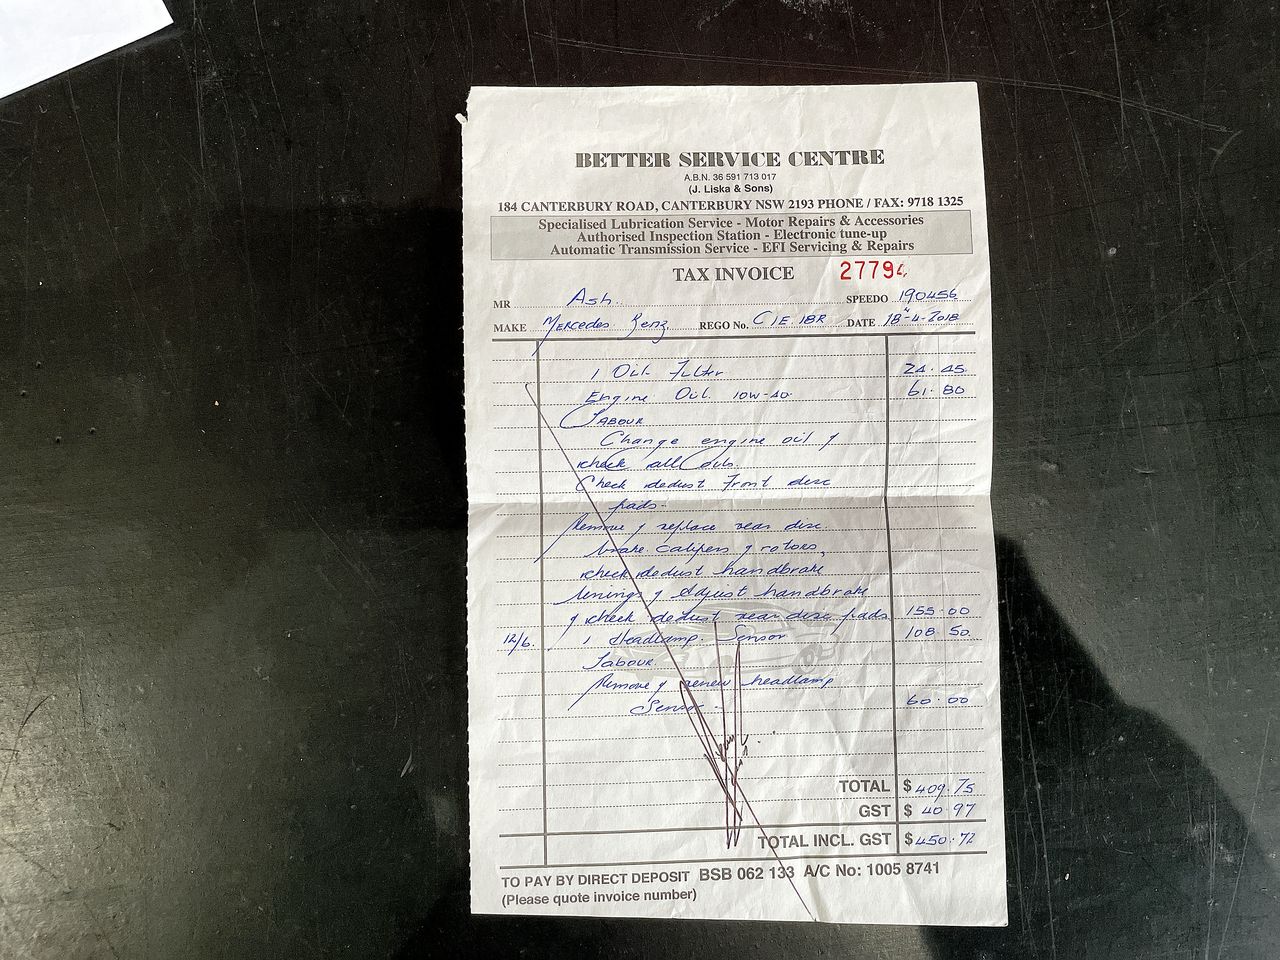 BETTER SERVICE CENTRE
A.B.N. 36 591 713 017
(J. Liska & Sons)
184 CANTERBURY ROAD, CANTERBURY NSW 2193 PHONE / FAX: 9718 1325
Specialised Lubrication Service - Motor Repairs & Accessories
Authorised Inspection Station - Electronic tune-up
Automatic Transmission Service - EFI Servicing & Repairs
TAX INVOICE 2779
MR Ash. SPEEDO 190456
MAKE Mercedes Benz REGO No. C1E 18R DATE 18-4-2018
1 Oil Filter 24.45
Engine Oil 10W-40. 61.80
Labour
Change engine oil &
check all oils
Check dedust front disc
pads-
Remove & replace rear disc
brake calipers & rotors,
check dedust handbrake
linings & adjust handbrake
& check dedust rear disc pads 155.00
12/6. 1 Headlamp Sensor 108.50
Labour.
Remove & renew headlamp
Sensor - 60.00
TOTAL $ 409.75
GST $ 40.97
TOTAL INCL. GST $ 450.72
TO PAY BY DIRECT DEPOSIT BSB 062 133 A/C No: 1005 8741
(Please quote invoice number)